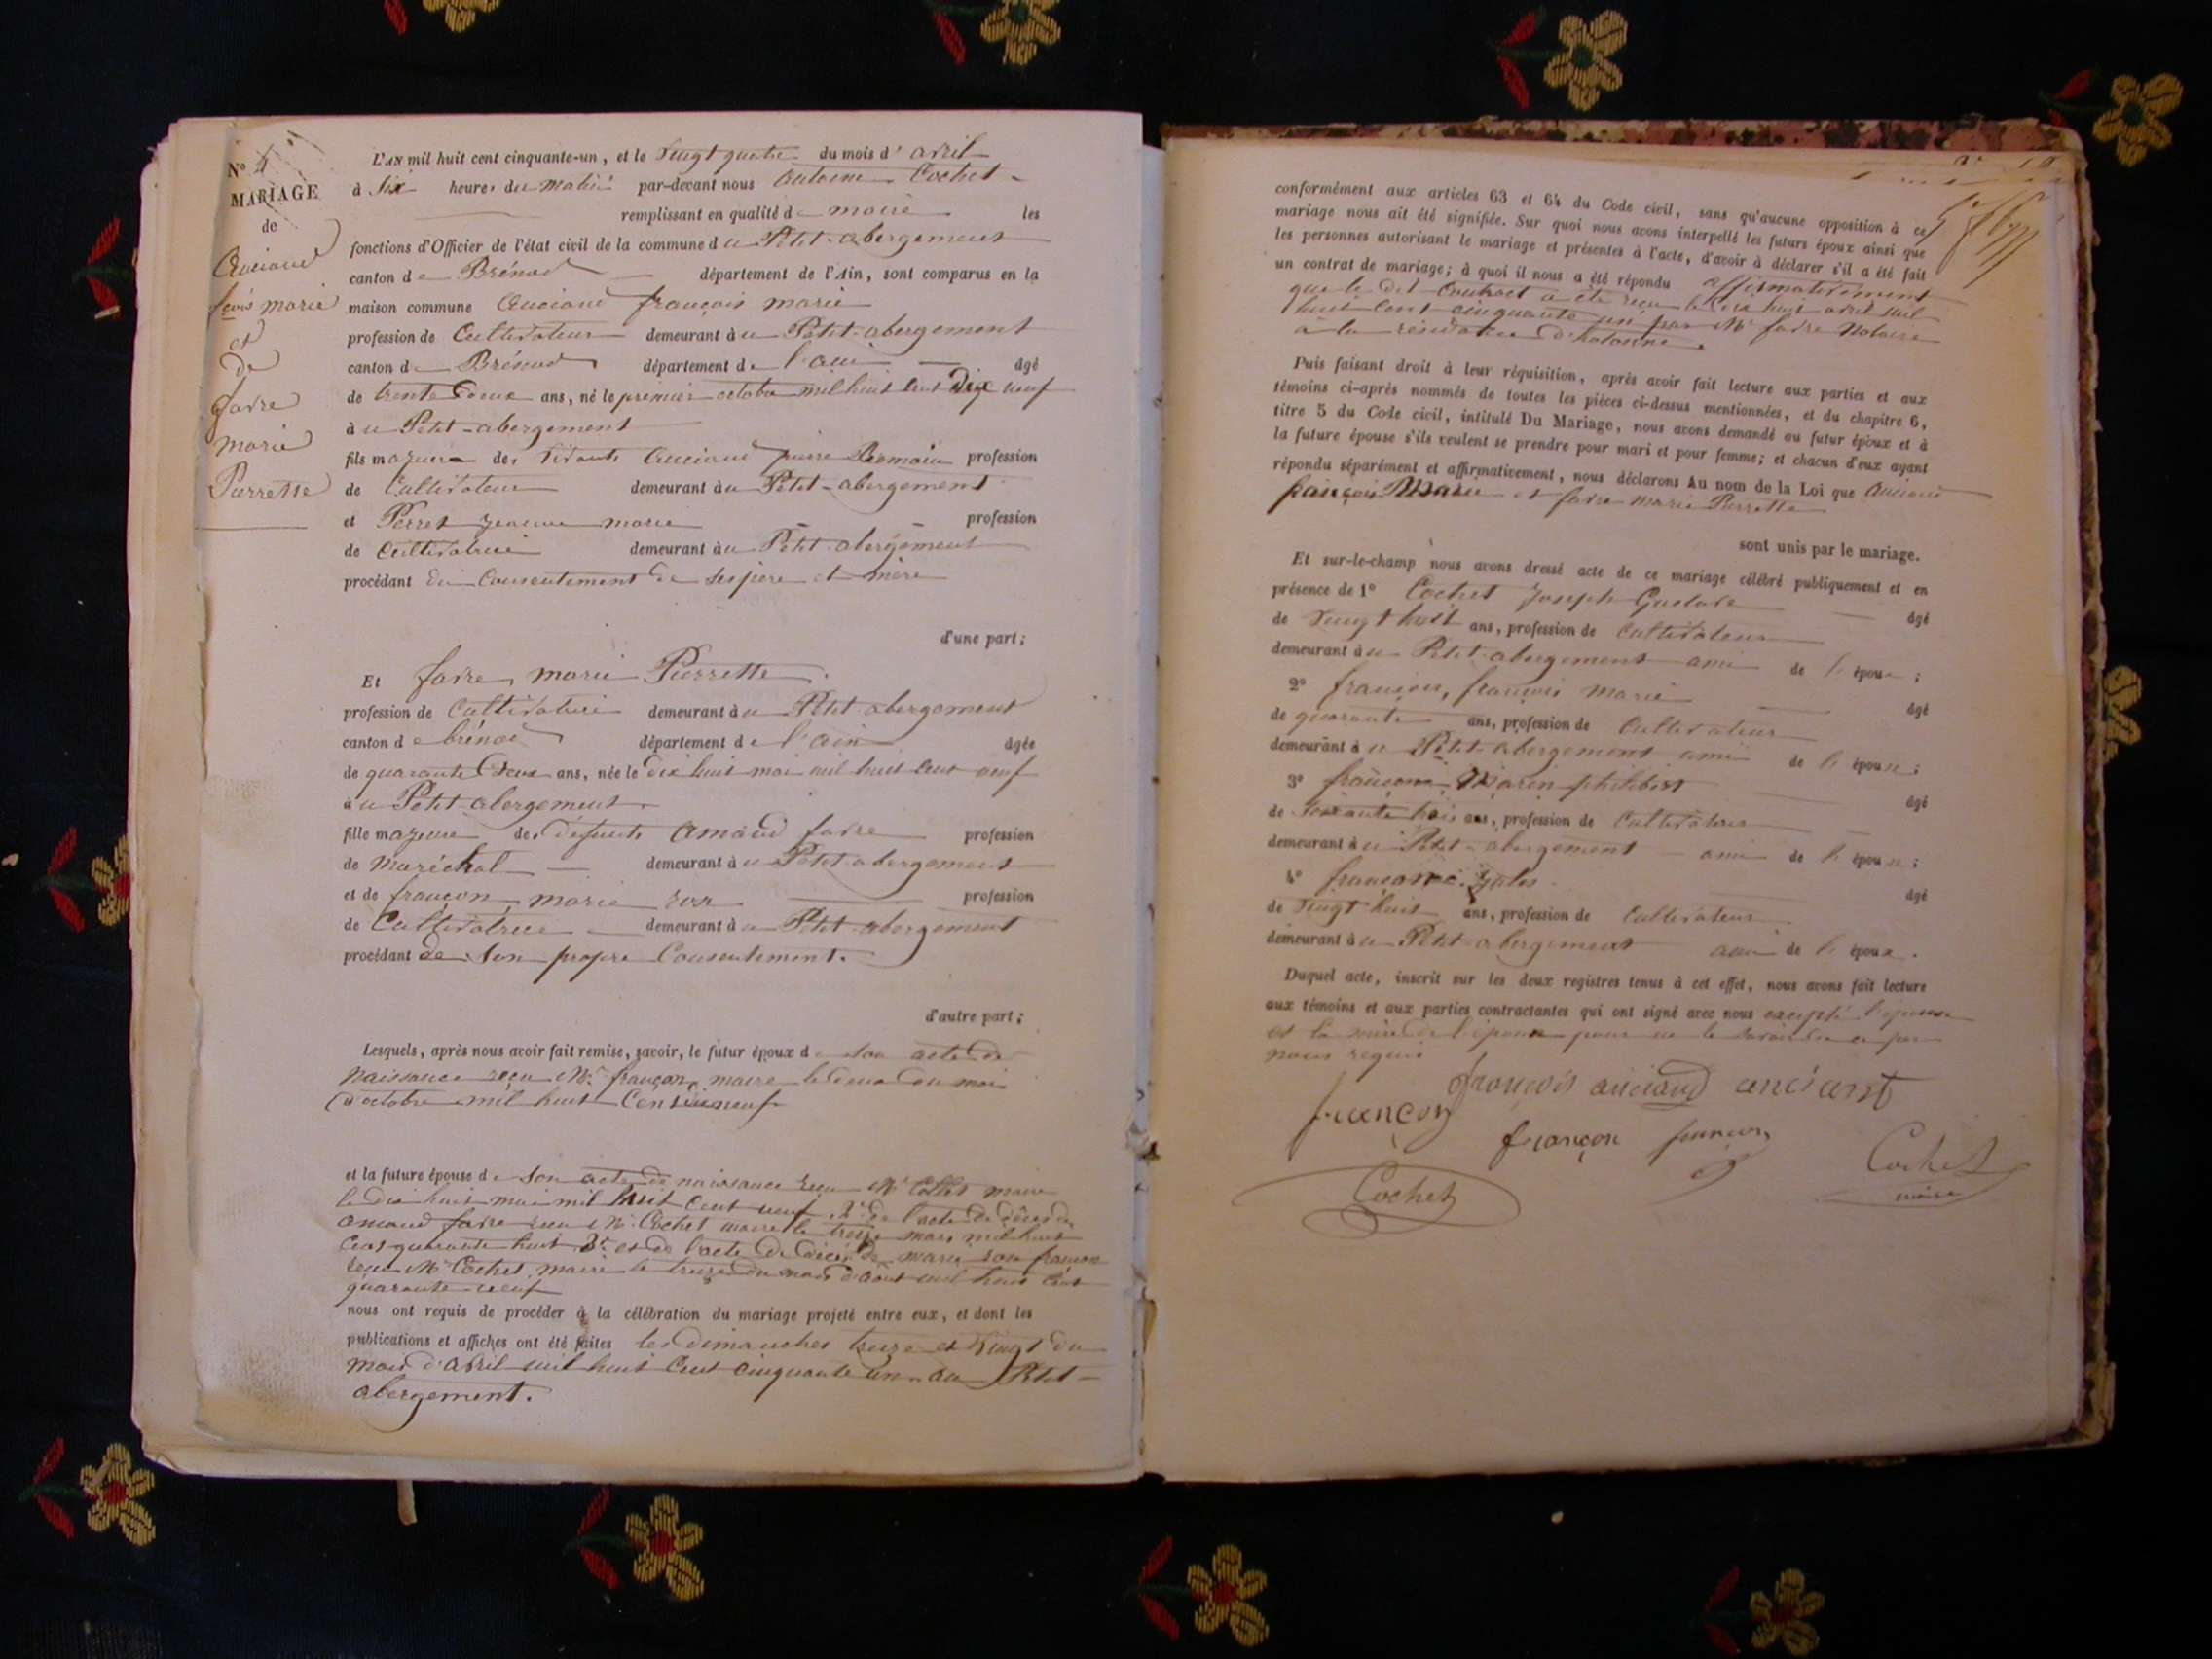 N° 4
MARIAGE
de
Anciand
fçois marie
et
de
favre
marie
Pierrette
L'AN mil huit cent cinquante-un, et le vingt quatre du mois d'avril
à six heures du matin par-devant nous antoine Cochet
remplissant en qualité de maire les
fonctions d'Officier de l'état civil de la commune du Petit-abergement
canton de Brénod département de l'Ain, sont comparus en la
maison commune Anciand françois marie
profession de Cultivateur demeurant au Petit-abergement
canton de Brénod département de l'ain âgé
de trente deux ans, né le premier octobre mil huit cent Dix neuf
au Petit-abergement
fils majeur des vivants Anciand pierre Romain profession
de Cultivateur demeurant au Petit-abergement
et Perret jeanne marie profession
de Cultivatrice demeurant au Petit-abergement
procédant du Consentement de ses pere et mère
d'une part;
Et favre marie Pierrette.
profession de Cultivatrice demeurant au Petit-abergement
canton de brénod département de l'ain âgée
de quarante Deux ans, née le dix huit mai mil huit cent neuf
au Petit-abergement
fille majeure des défunts Amand favre profession
de Maréchal demeurant au Petit-abergement
et de françon marie profession
de Cultivatrice demeurant au Petit-abergement
procédant de son propre Consentement.
d'autre part;
Lesquels, après nous avoir fait remise, savoir, le futur époux de son acte de
naissance reçu Mr françon maire le deux du mois
d'octobre mil huit Cent dix neuf
et la future épouse de son acte de naissance reçu Mr Collet maire
le dix huit mai mil huit Cent neuf, 2° de l'acte de décès de
amand favre reçu Mr Cochet maire le treize mars mil huit
Cent quarante huit 3° et de l'acte de décès de marie françon
reçu Mr Cochet maire le treize du mois d'aout mil huit Cent
quarante neuf
nous ont requis de procéder à la célébration du mariage projeté entre eux, et dont les
publications et affiches ont été faites les dimanches treize et vingt du
mois d'avril mil huit Cent cinquante un au Petit-
abergement.
conformément aux articles 63 et 64 du Code civil, sans qu'aucune opposition à ce
mariage nous ait été signifiée. Sur quoi nous avons interpellé les futurs époux ainsi que
les personnes autorisant le mariage et présentes à l'acte, d'avoir à déclarer s'il a été fait
un contrat de mariage; à quoi il nous a été répondu affirmativement
que le dit Contract a été reçu le dix huit avril mil
huit Cent cinquante un par Mr favre Notaire
à la résidence d'hotonne.
Puis faisant droit à leur réquisition, après avoir fait lecture aux parties et aux
témoins ci-après nommés de toutes les pièces ci-dessus mentionnées, et du chapitre 6,
titre 5 du Code civil, intitulé Du Mariage, nous avons demandé au futur époux et à
la future épouse s'ils veulent se prendre pour mari et pour femme; et chacun d'eux ayant
répondu séparément et affirmativement, nous déclarons Au nom de la Loi que Anciand
françois Marie et favre marie Pierrette
sont unis par le mariage.
Et sur-le-champ nous avons dressé acte de ce mariage célébré publiquement et en
présence de 1° Cochet joseph Gustave âgé
de vingt huit ans, profession de Cultivateur
demeurant au Petit-abergement ami de l'époux;
2° françon, françois marie âgé
de quarante ans, profession de Cultivateur
demeurant au Petit-abergement ami de l'époux;
3° françon Marin philibert âgé
de soixante trois ans, profession de Cultivateur
demeurant au Petit-abergement ami de l'époux;
4° françon jules âgé
de vingt huit ans, profession de Cultivateur
demeurant au Petit-abergement ami de l'époux.
Duquel acte, inscrit sur les deux registres tenus à cet effet, nous avons fait lecture
aux témoins et aux parties contractantes qui ont signé avec nous excepté l'épouse
et la mère de l'époux pour ne le savoir de ce par
nous requis
françois anciand anciant
françon
françon
Cochet
Cochet
maire